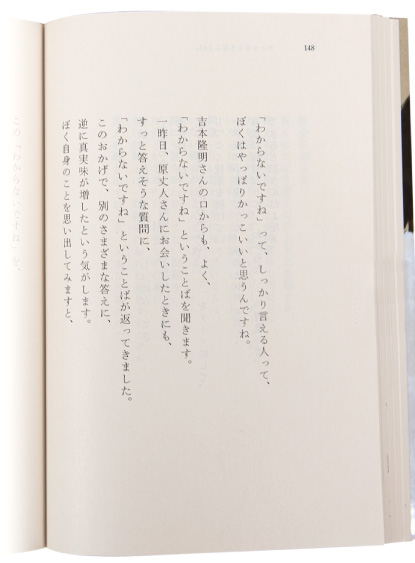 148
「わからないですね」って、しっかり言える人って、
ぼくはやっぱりかっこいいと思うんですね。
吉本隆明さんの口からも、よく、
「わからないですね」ということばを聞きます。
一昨日、原丈人さんにお会いしたときにも、
すっと答えそうな質問に、
「わからないですね」ということばが返ってきました。
このおかげで、別のさまざまな答えに、
逆に真実味が増したという気がします。
ぼく自身のことを思い出してみますと、